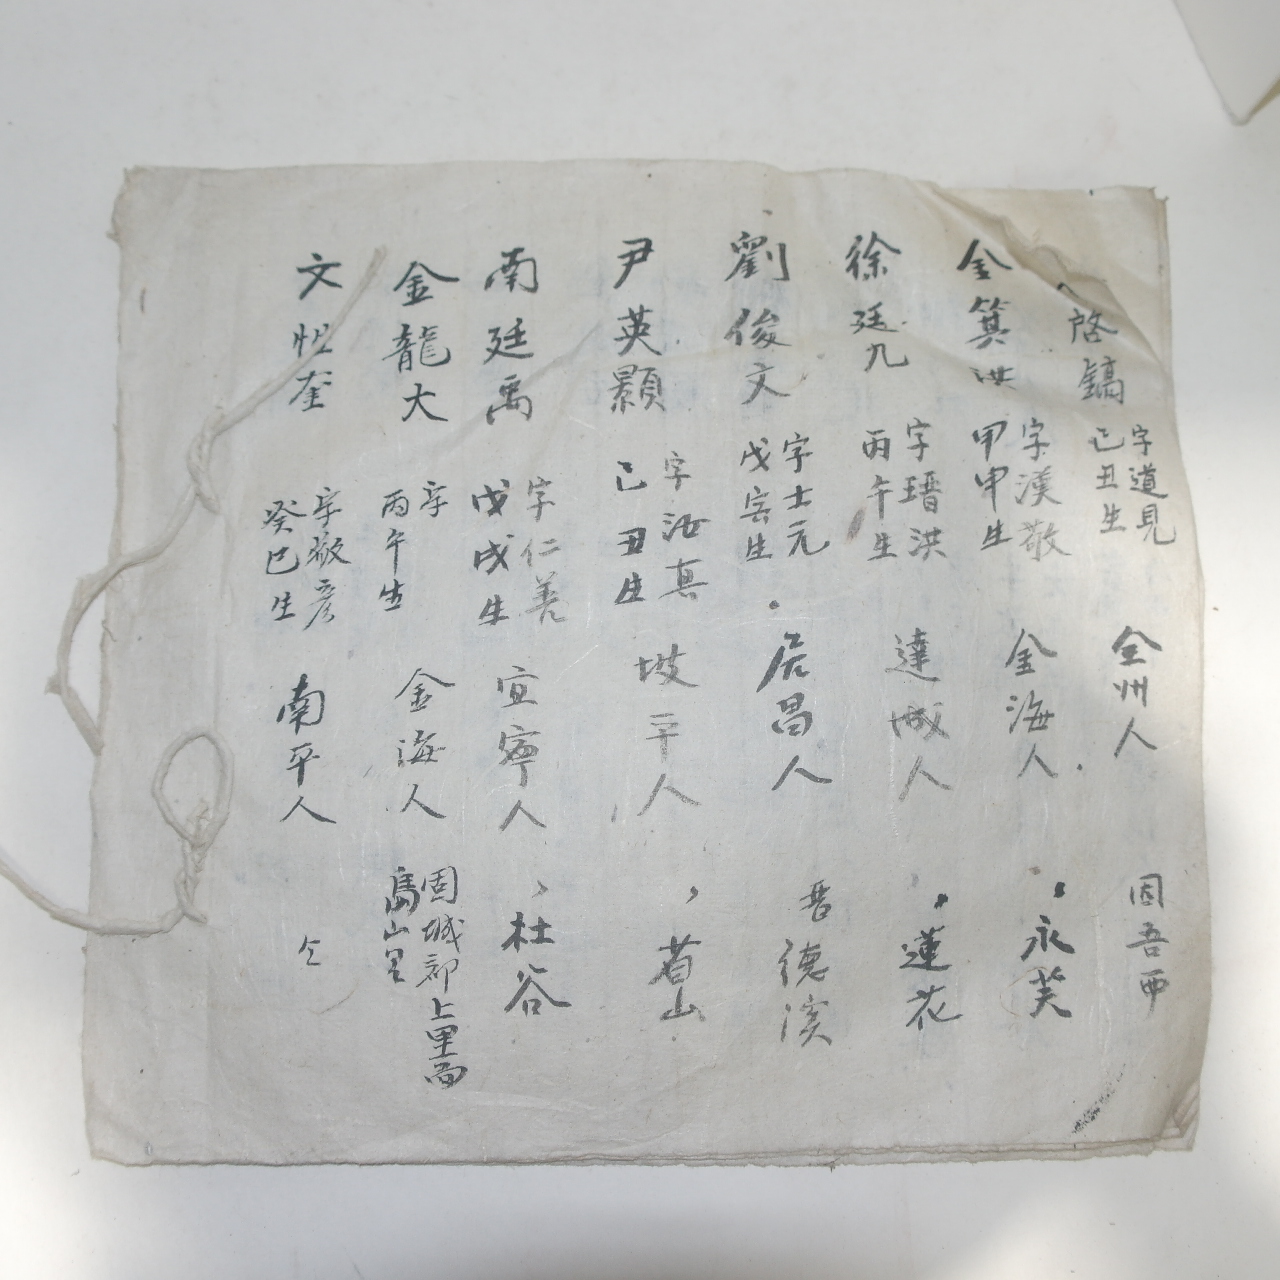 啓鎬 字道見 己丑生 全州人 固吾西
金箕洪 字漢敬 甲申生 金海人 永芙
徐廷九 字瑨洪 丙午生 達城人 蓮花
劉俊文 字士元 戊寅生 居昌人 晋德溪
尹英顥 字汝真 己丑生 坡平人 省山
南廷禹 字仁善 戊戌生 宜寧人 杜谷
金龍大 字 丙午生 金海人 固城郡上里面 山里
文奎 字敬彦 癸巳生 南平人 仝